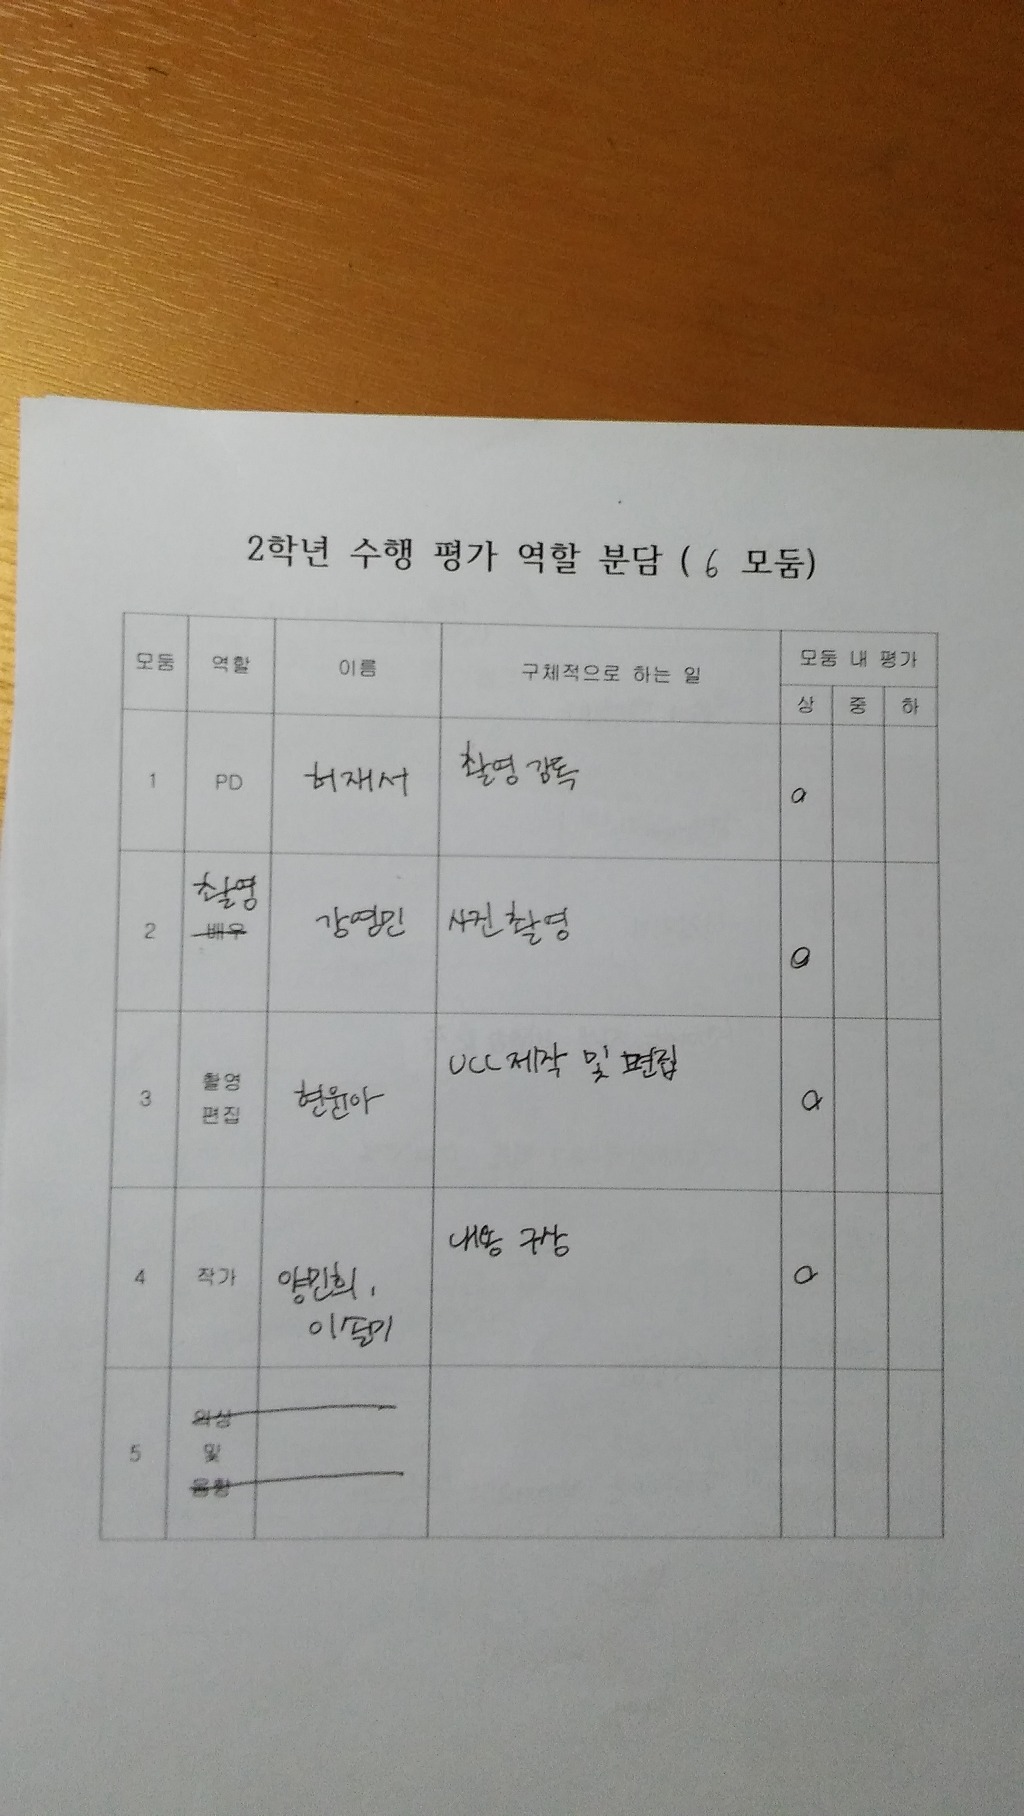 2학년 수행 평가 역할 분담 ( 6 모둠)
모둠 역할 이름 구체적으로 하는 일 모둠 내 평가
상 중 하
1 PD 허재서 촬영 감독 O
촬영
2 배우 강영민 사진 촬영 O
3 촬영 편집 현윤아 UCC 제작 및 편집 O
4 작가 양민희, 내용 구상 O
5 의상
및
음향